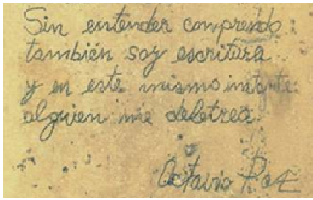 Sin entender comprendo:
también soy escritura
y en este mismo instante
alguien me deletrea.
Octavio Paz